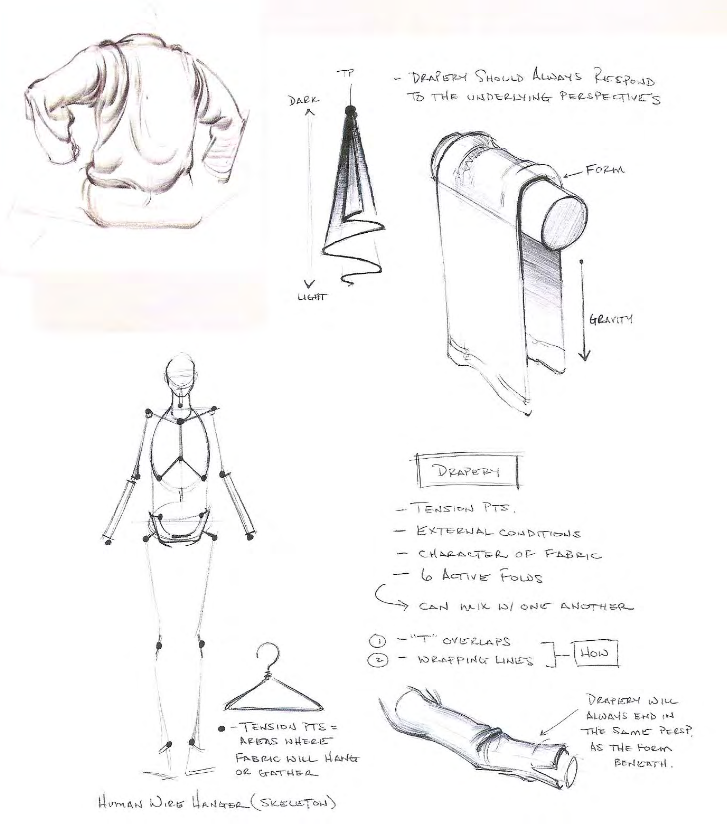 TP
DARK
LIGHT
- DRAPERY SHOULD ALWAYS RESPOND
TO THE UNDERLYING PERSPECTIVES
FORM
GRAVITY
DRAPERY
- TENSION PTS.
- EXTERNAL CONDITIONS
- CHARACTER OF FABRIC
- 6 ACTIVE FOLDS
CAN MIX W/ ONE ANOTHER
① - "T" OVERLAPS
② - WRAPPING LINES
HOW
DRAPERY WILL
ALWAYS END IN
THE SAME PERSP.
AS THE FORM
BENEATH.
- TENSION PTS =
AREAS WHERE
FABRIC WILL HANG
OR GATHER
HUMAN WIRE HANGER (SKELETON)